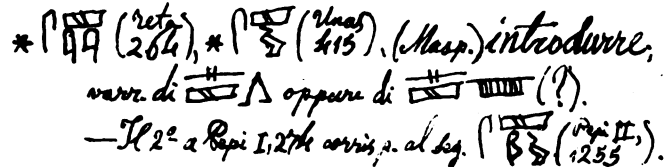 * (Teta, 264), * (Unas, 415). (Masp.) introdurre,
varr. di oppure di (?).
— Il 2º a Pepi I, corrisp. al seg. (Pepi II, 1255)